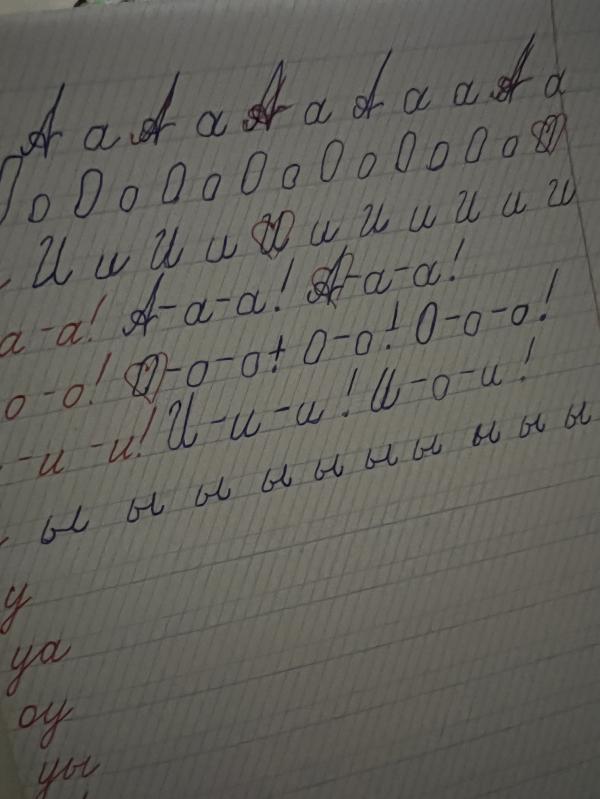 А а А а А а А а а А а
О о О о О о О о О о О о О о О
И и И и И и И и И и и
а-а! А-а-а! А-а-а!
о-о! О-о-о! О-о! О-о-о!
-и-и! И-и-и! И-о-и!
ы ы ы ы ы ы ы ы ы ы
у
уа
оу
уы